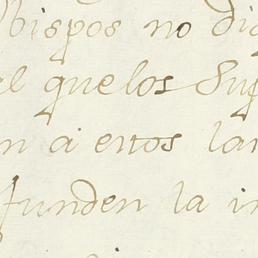 Obispos no di
el que los Sup
n a estos lar
funden la in